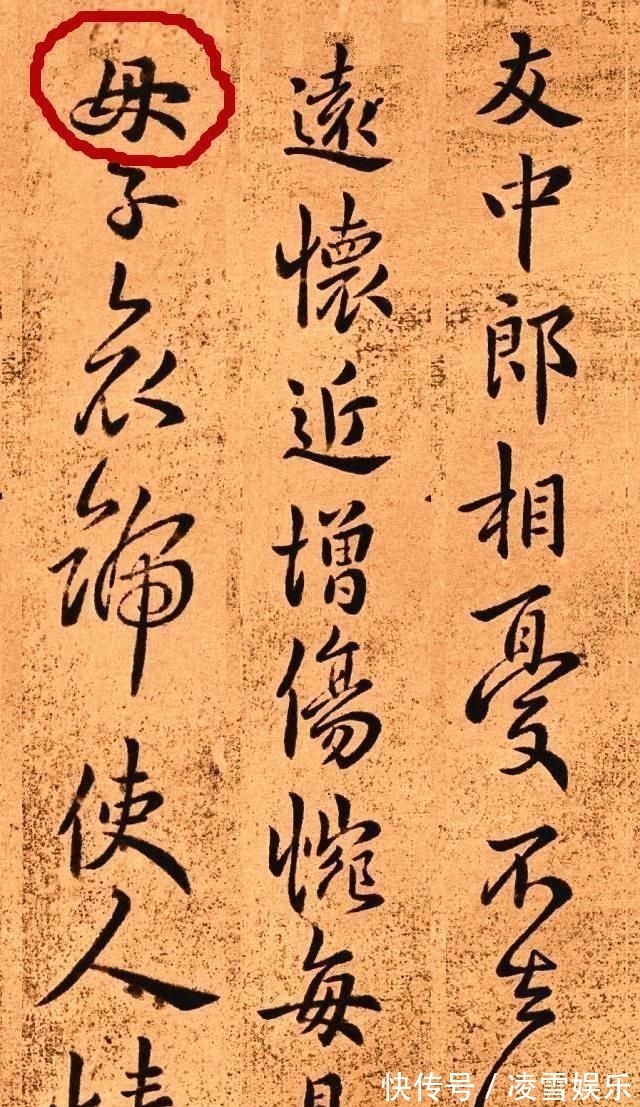 友中郎相憂不去
遠懷近增傷惋每
母子哀號使人
快传号 / 凌雪娱乐